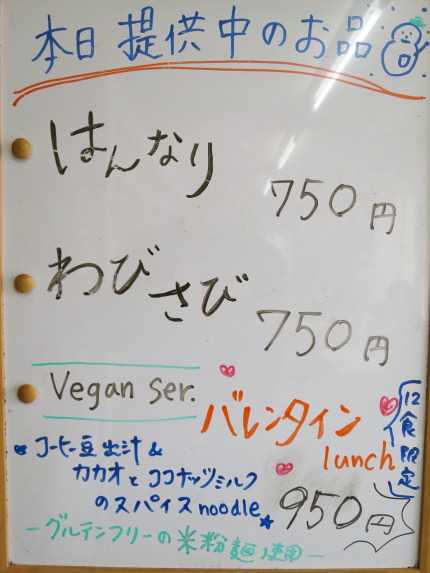 本日提供中のお品
はんなり
750円
わびさび
750円
Vegan Ser.
バレンタイン
lunch
12食限定
コーヒー豆出汁&
カカオとココナッツミルク
のスパイスnoodle
950円
ーグルテンフリーの米粉麺使用ー